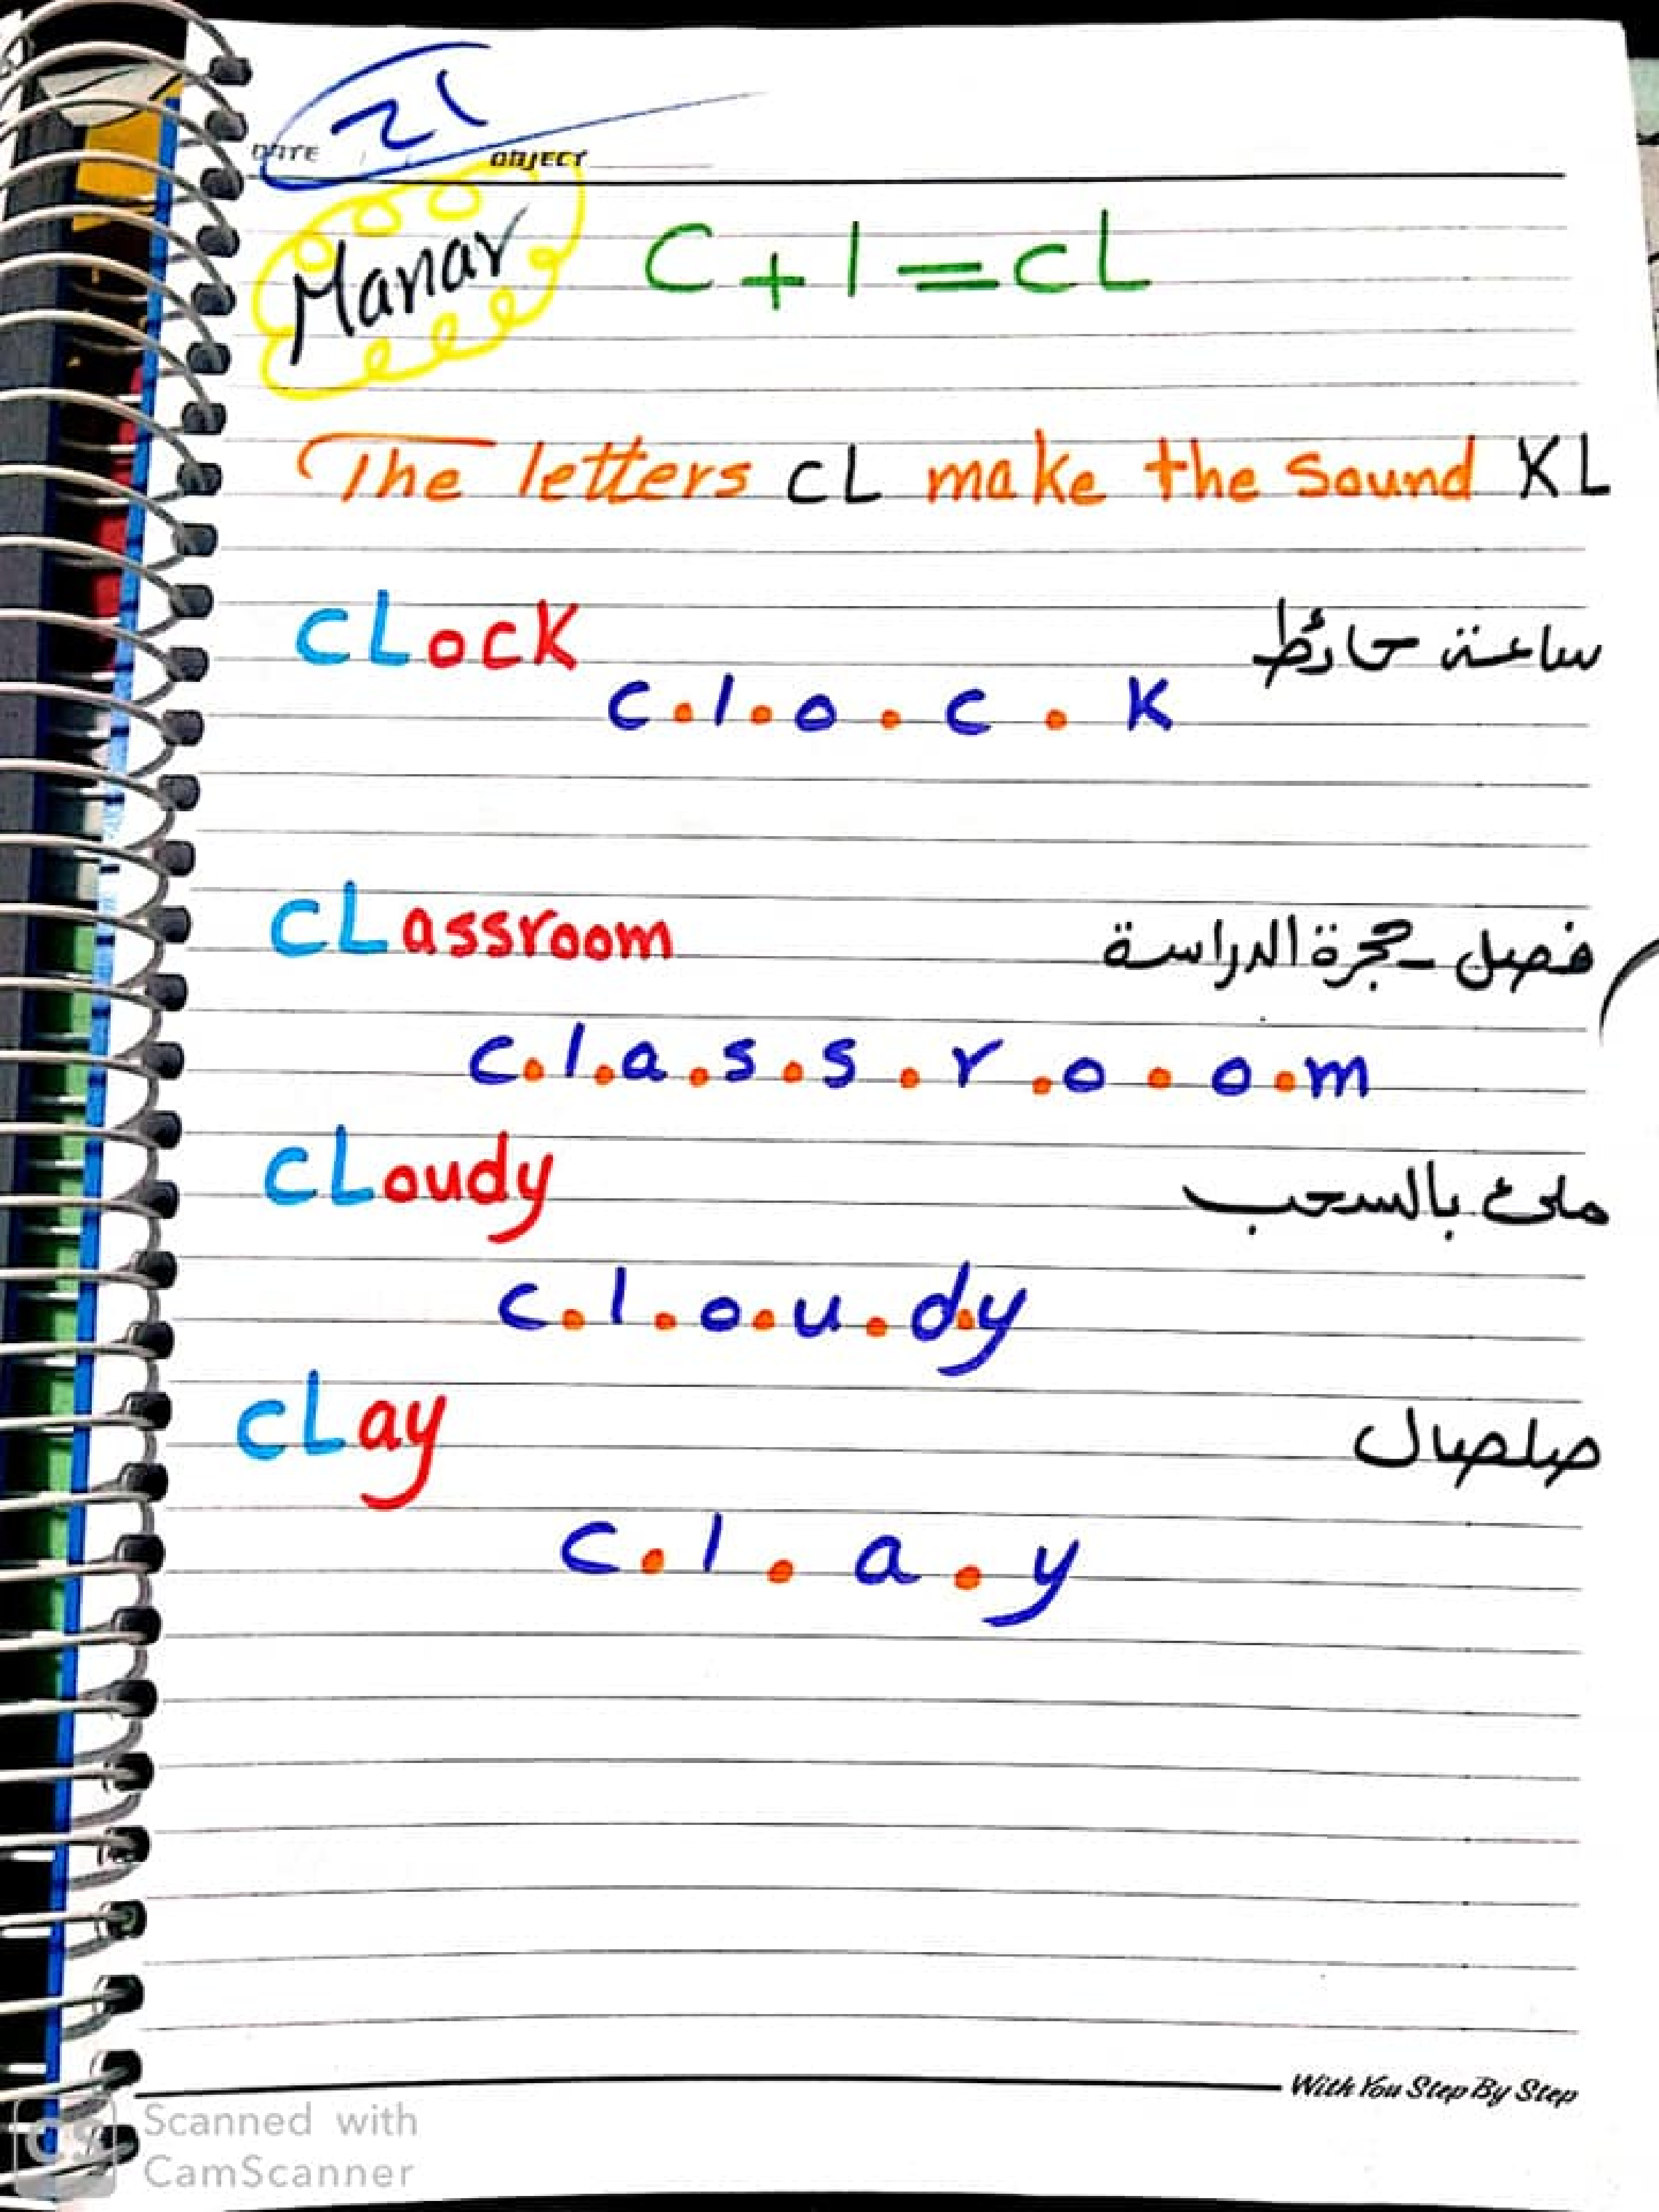 21
DATE / / OBJECT
Manar
C + l = cL
The letters cL make the sound KL
cLock ساعة حائط
c.l.o.c.k
cLassroom فصل - حجرة الدراسة
c.l.a.s.s.r.o.o.m
cLoudy ملئ بالسحب
c.l.o.u.d.y
cLay صلصال
c.l.a.y
With You Step By Step
CS Scanned with
CamScanner